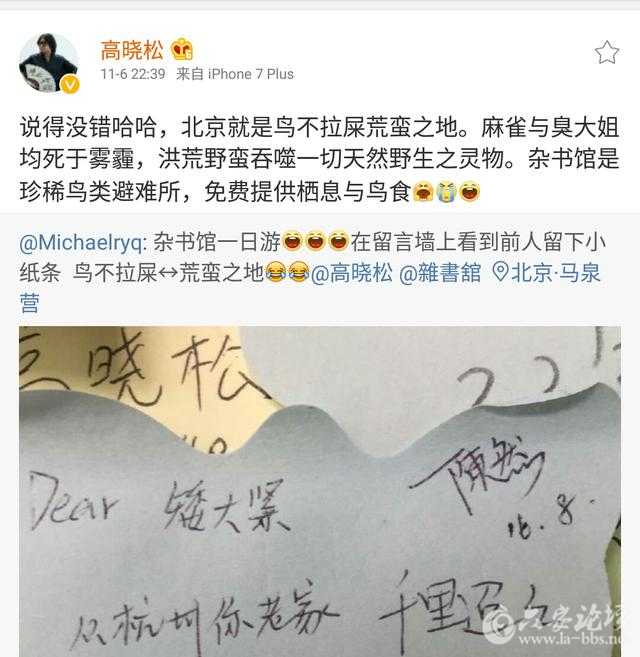 高晓松
11-6 22:39 来自 iPhone 7 Plus
说得没错哈哈，北京就是鸟不拉屎荒蛮之地。麻雀与臭大姐
均死于雾霾，洪荒野蛮吞噬一切天然野生之灵物。杂书馆是
珍稀鸟类避难所，免费提供栖息与鸟食
@Michaelryq: 杂书馆一日游在留言墙上看到前人留下小
纸条 鸟不拉屎↔荒蛮之地@高晓松 @雜書舘 北京·马泉
营
高晓松
Dear 矮大紧
陳然
16.8.
从杭州你老家 千里迢
六安论坛
www.la-bbs.net